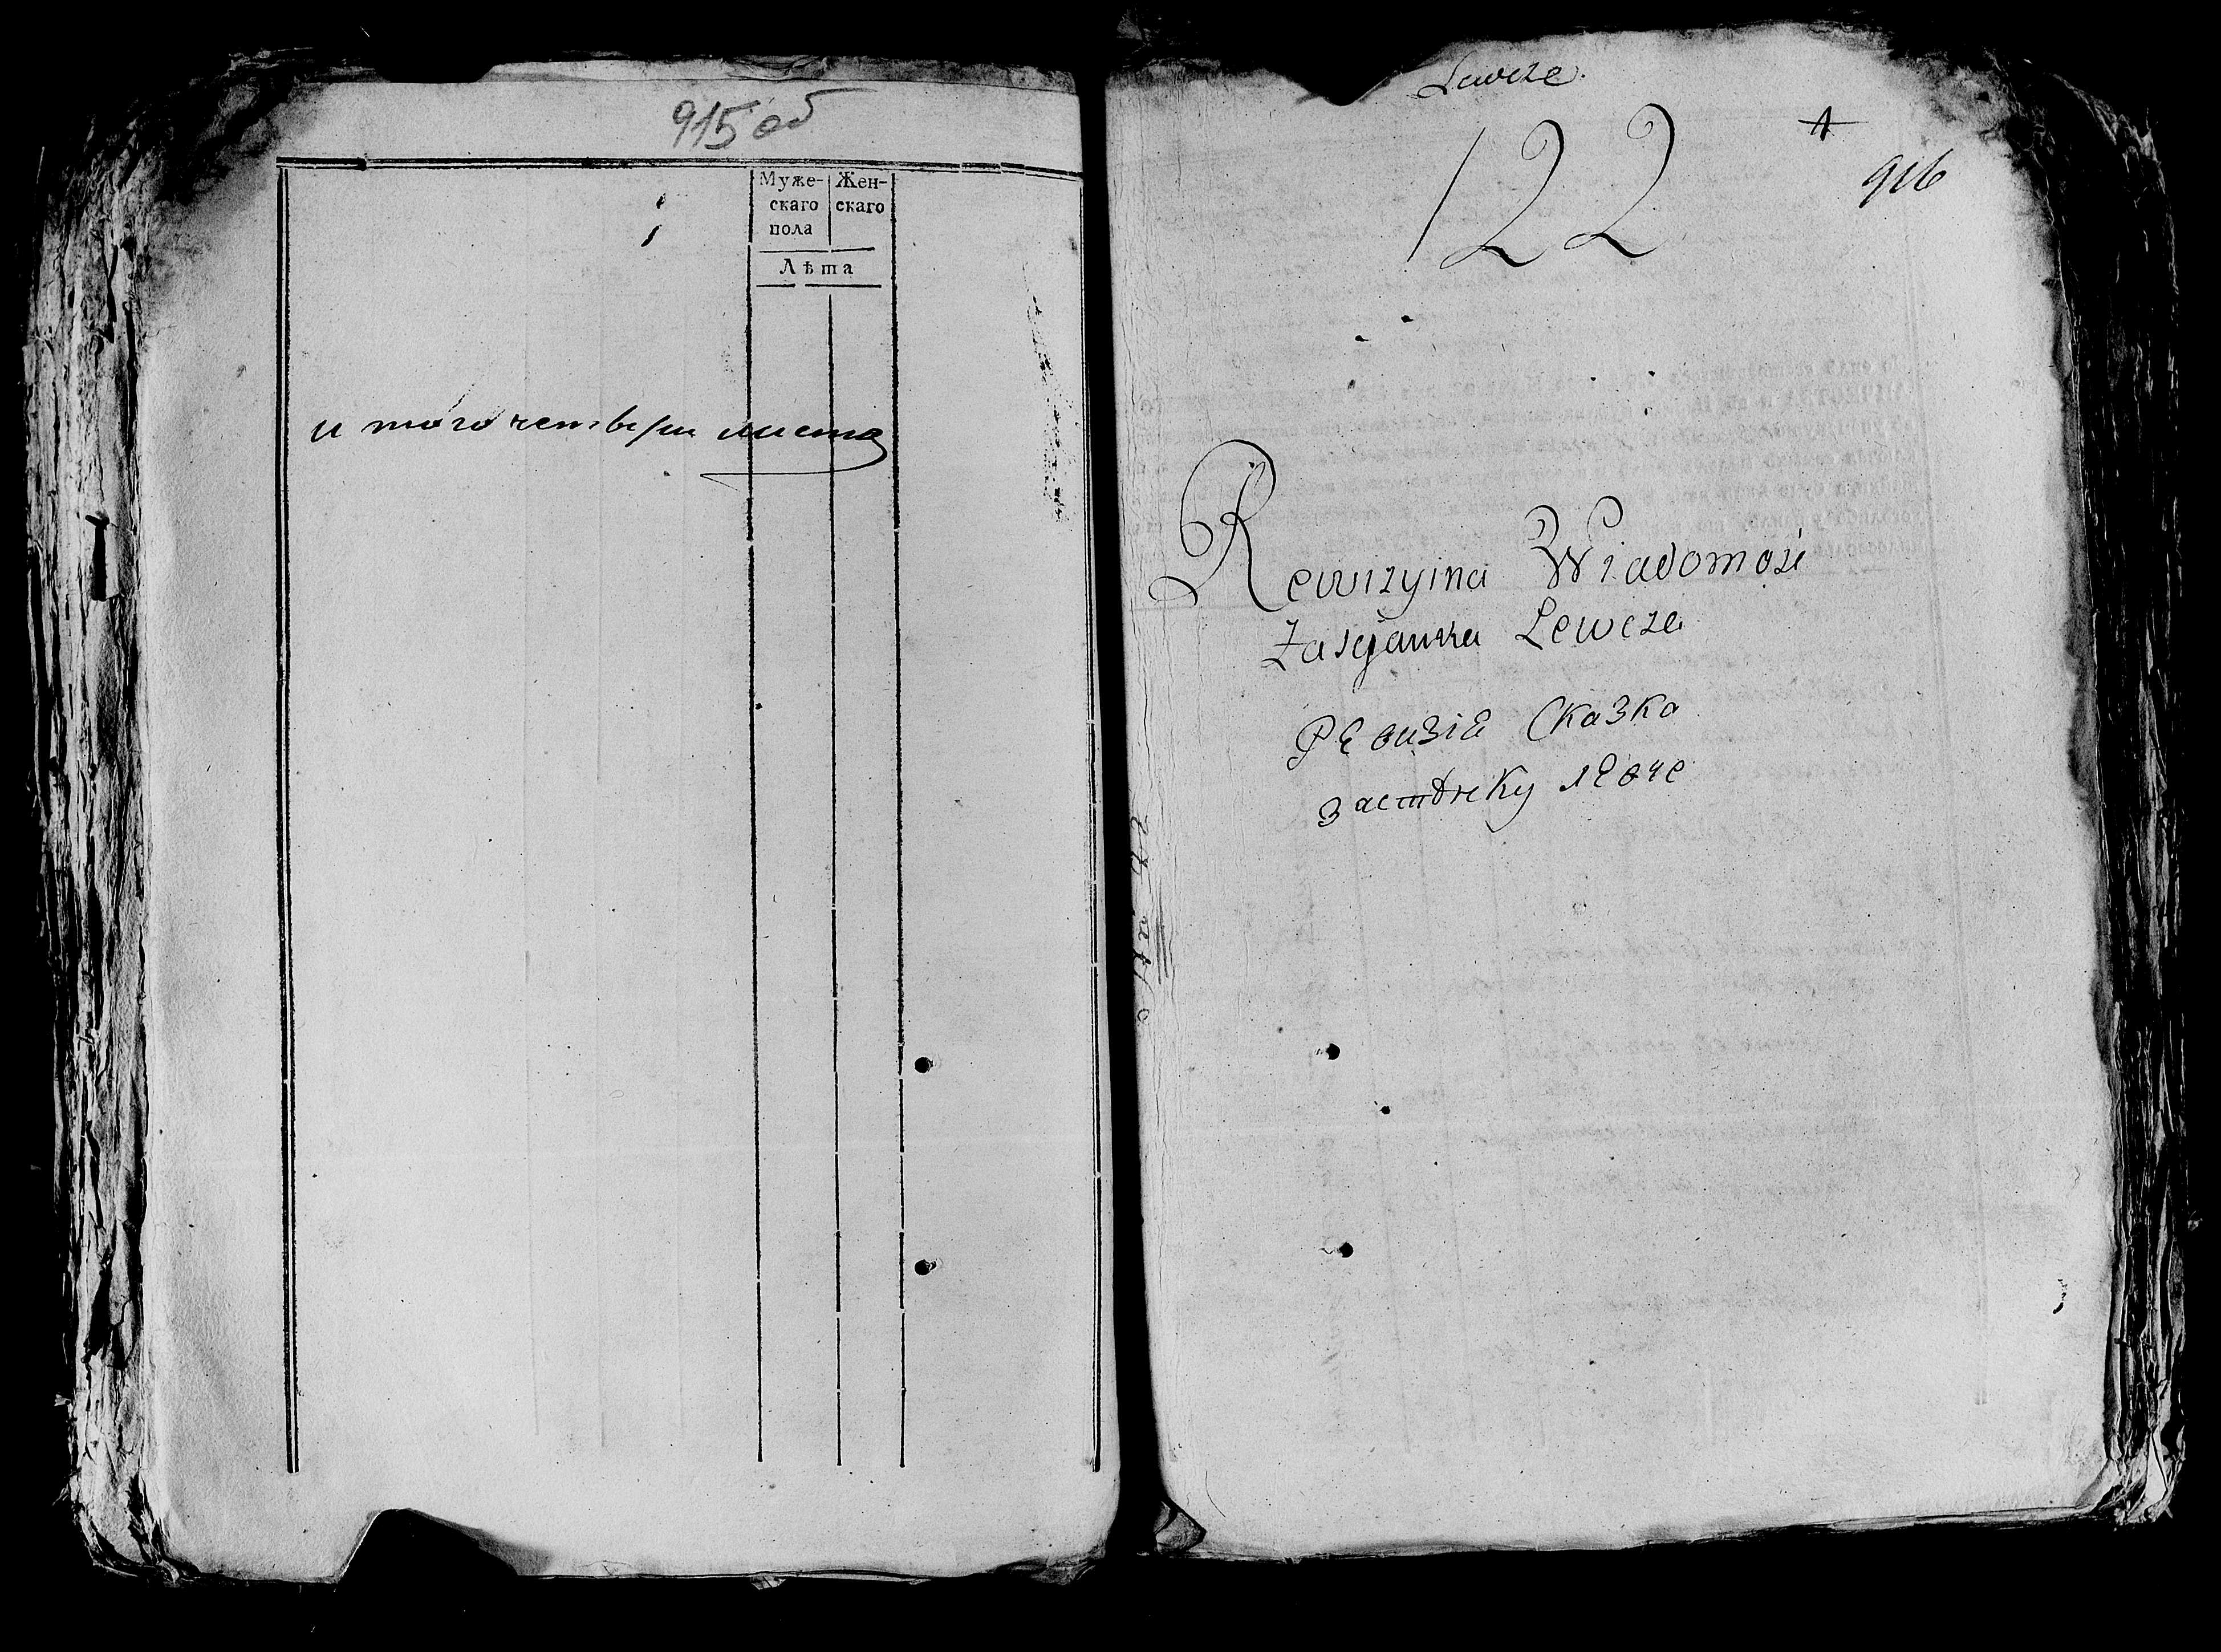 915 об
Муже- Жен-
скаго скаго
пола
Лѣта
и того четвери листа
Lewcze.
122
1
916
Rewizyina Wiadomość
Zascianka Lewcze
Ревизіе Сказка
застѣнку левче